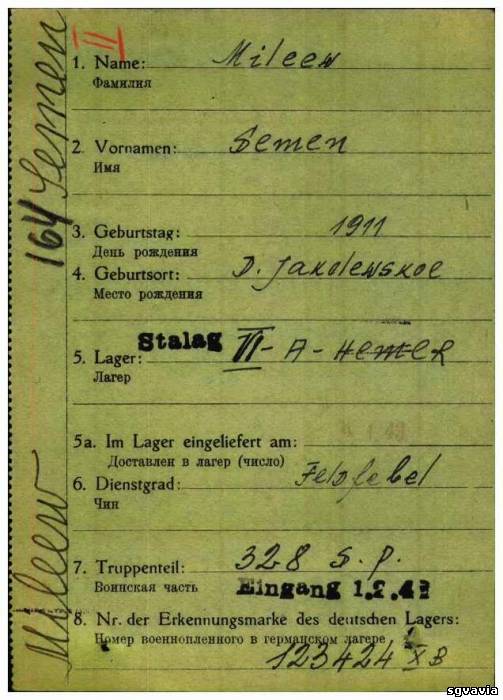 II
1. Name: Mileew
Фамилия
2. Vornamen: Semen
Имя
3. Geburtstag: 1911
День рождения
4. Geburtsort: D. Jakolewskoe
Место рождения
5. Lager: Stalag VI - A - Hemer
Лагер
5a. Im Lager eingeliefert am:
Доставлен в лагер (число)
6. Dienstgrad: Feldfebel
Чин
7. Truppenteil: 328 S.P.
Воинская часть Eingang 1.2.43
8. Nr. der Erkennungsmarke des deutschen Lagers:
Номер военнопленного в германском лагере
123424 XB
Mileew 164 Semen
sgvavia